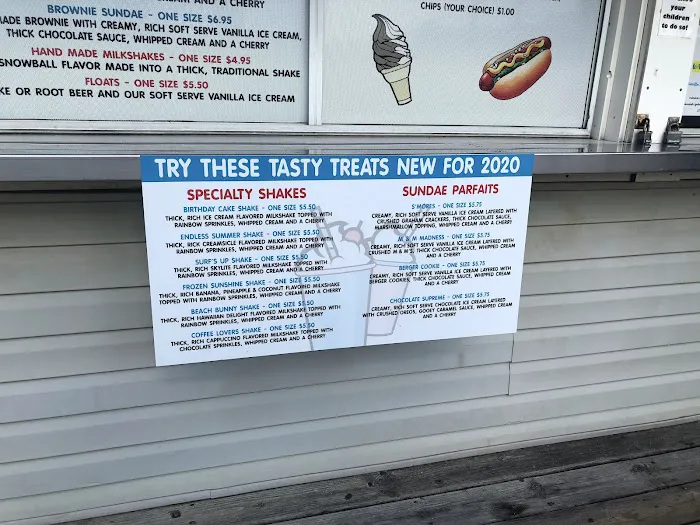 AND A CHERRY
BROWNIE SUNDAE - ONE SIZE $6.95
MADE BROWNIE WITH CREAMY, RICH SOFT SERVE VANILLA ICE CREAM,
THICK CHOCOLATE SAUCE, WHIPPED CREAM AND A CHERRY
HAND MADE MILKSHAKES - ONE SIZE $4.95
SNOWBALL FLAVOR MADE INTO A THICK, TRADITIONAL SHAKE
FLOATS - ONE SIZE $5.50
KE OR ROOT BEER AND OUR SOFT SERVE VANILLA ICE CREAM
CHIPS (YOUR CHOICE) $1.00
your
children
to do so!
TRY THESE TASTY TREATS NEW FOR 2020
SPECIALTY SHAKES
BIRTHDAY CAKE SHAKE - ONE SIZE $5.50
THICK, RICH ICE CREAM FLAVORED MILKSHAKE TOPPED WITH
RAINBOW SPRINKLES, WHIPPED CREAM AND A CHERRY
ENDLESS SUMMER SHAKE - ONE SIZE $5.50
THICK, RICK CREAMSICLE FLAVORED MILKSHAKE TOPPED WITH
RAINBOW SPRINKLES, WHIPPED CREAM AND A CHERRY
SURF'S UP SHAKE - ONE SIZE $5.50
THICK, RICH SKYLITE FLAVORED MILKSHAKE TOPPED WITH
RAINBOW SPRINKLES, WHIPPED CREAM AND A CHERRY
FROZEN SUNSHINE SHAKE - ONE SIZE $5.50
THICK, RICH BANANA, PINEAPPLE & COCONUT FLAVORED MILKSHAKE
TOPPED WITH RAINBOW SPRINKLES, WHIPPED CREAM AND A CHERRY
BEACH BUNNY SHAKE - ONE SIZE $5.50
THICK, RICH HAWAIIAN DELIGHT FLAVORED MILKSHAKE TOPPED WITH
RAINBOW SPRINKLES, WHIPPED CREAM AND A CHERRY
COFFEE LOVERS SHAKE - ONE SIZE $5.50
THICK, RICH CAPPUCCINO FLAVORED MILKSHAKE TOPPED WITH
CHOCOLATE SPRINKLES, WHIPPED CREAM AND A CHERRY
SUNDAE PARFAITS
S'MORES - ONE SIZE $5.75
CREAMY, RICH SOFT SERVE VANILLA ICE CREAM LAYERED WITH
CRUSHED GRAHAM CRACKERS, THICK CHOCOLATE SAUCE,
MARSHMALLOW TOPPING, WHIPPED CREAM AND A CHERRY
M & M MADNESS - ONE SIZE $5.75
CREAMY, RICH SOFT SERVE VANILLA ICE CREAM LAYERED WITH
CRUSHED M & M'S, THICK CHOCOLATE SAUCE, WHIPPED CREAM
AND A CHERRY
BERGER COOKIE - ONE SIZE $5.75
CREAMY, RICH SOFT SERVE VANILLA ICE CREAM LAYERED WITH
BERGER COOKIES, THICK CHOCOLATE SAUCE, WHIPPED CREAM
AND A CHERRY
CHOCOLATE SUPREME - ONE SIZE $5.75
CREAMY, RICH SOFT SERVE CHOCOLATE ICE CREAM LAYERED
WITH CRUSHED OREOS, GOOEY CARAMEL SAUCE, WHIPPED CREAM
AND A CHERRY